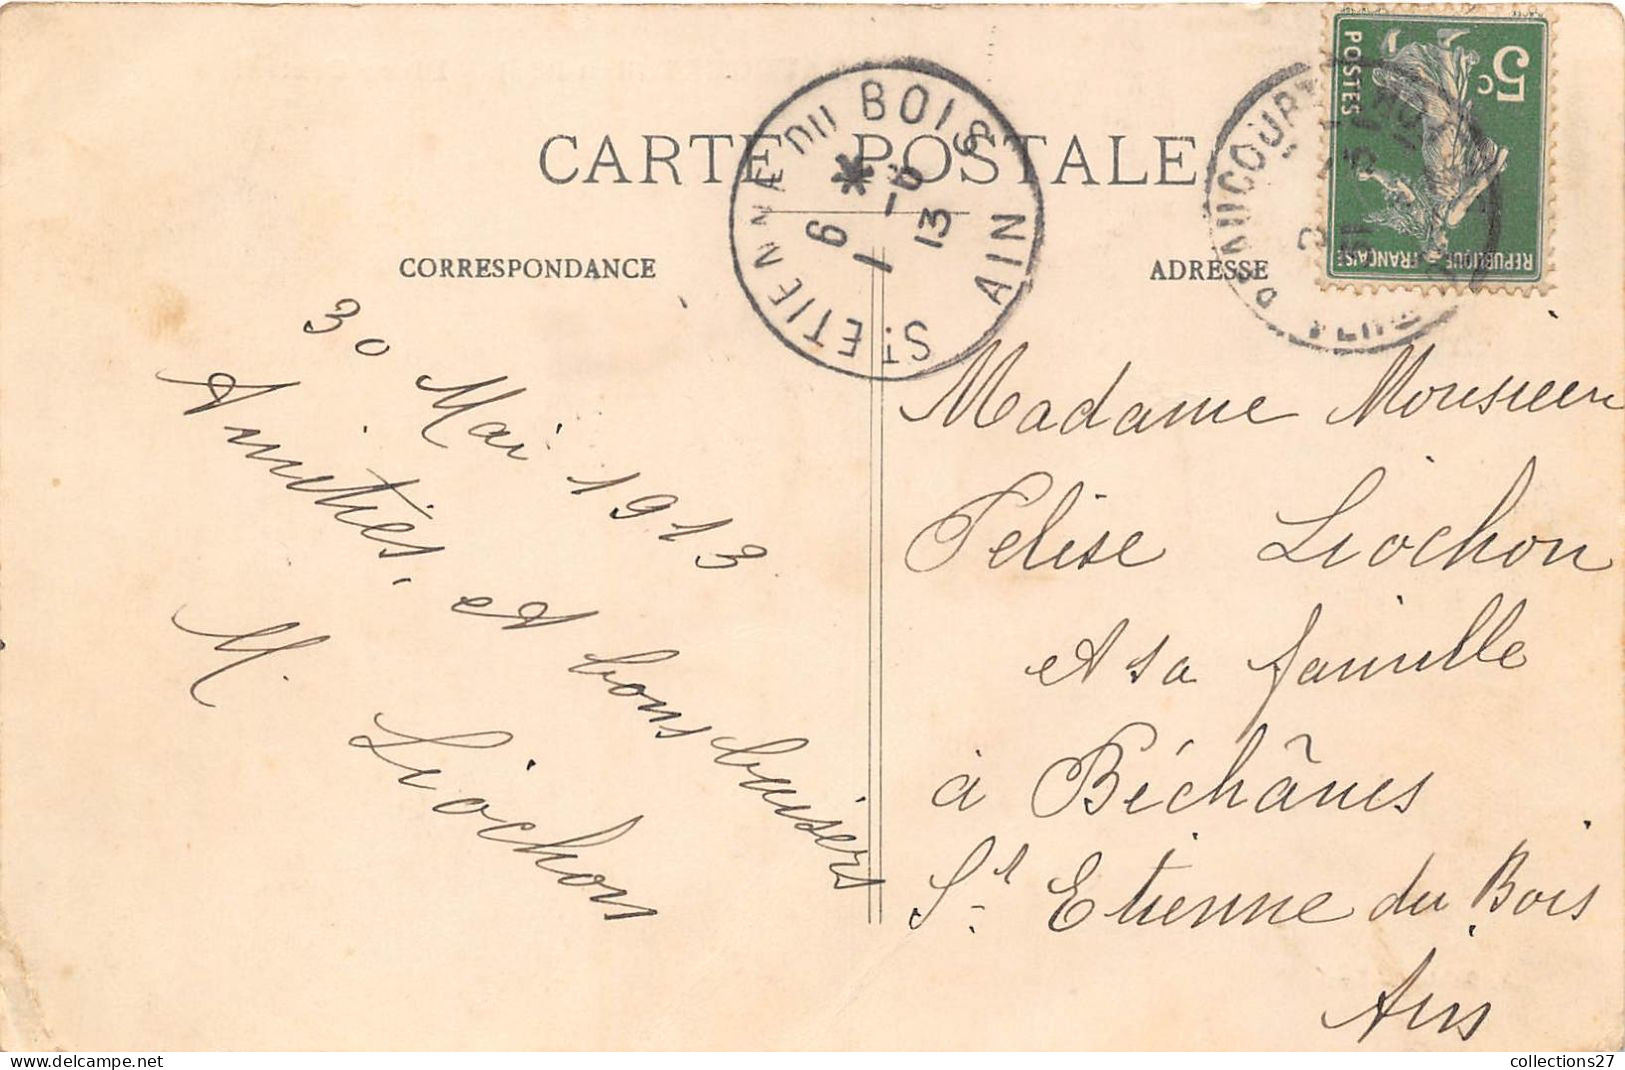 CARTE POSTALE
CORRESPONDANCE
ADRESSE
St ETIENNE DU BOIS
AIN
6 *
1 -6
13
5c
POSTES
REPUBLIQUE FRANÇAISE
30 Mai 1913
Amitiés, et bons baisers
M. Liochon
Madame Monsieur
Felise Liochon
et sa famille
à Béchânes
St Etienne du Bois
Ain
collections27